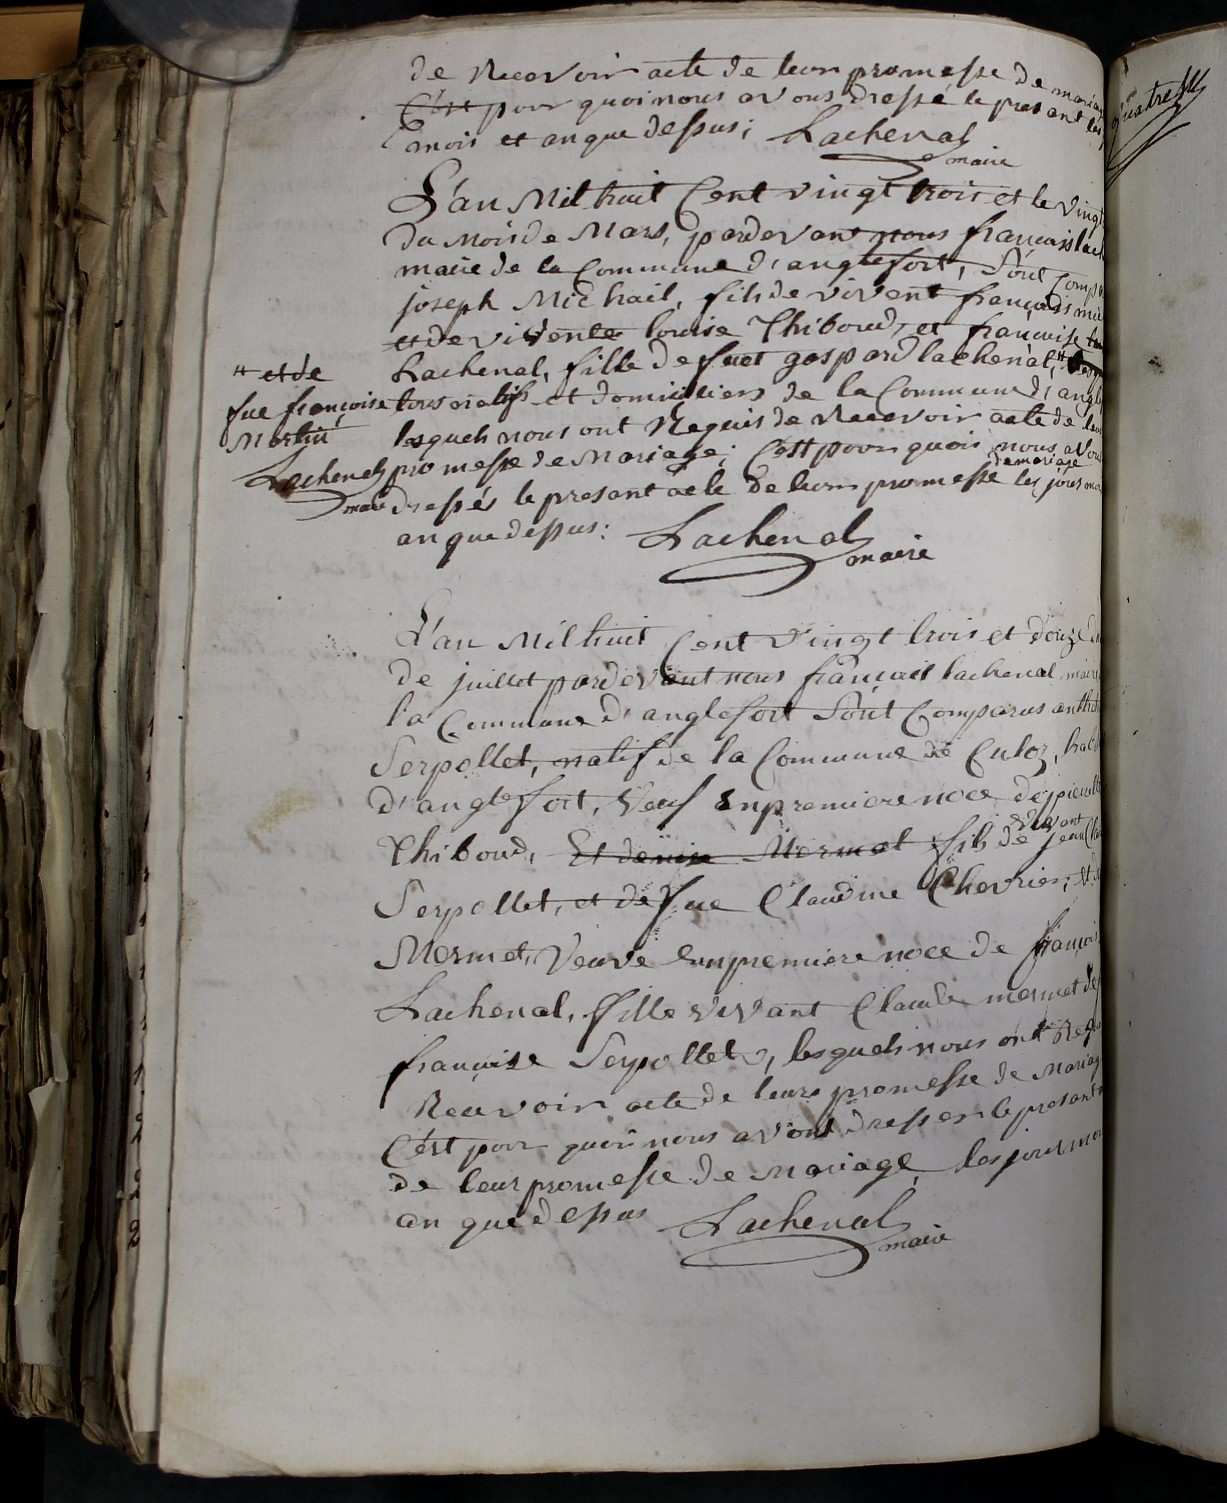 de Recevoir acte de leur promesse de mariage
C'est pour quoi nous avons dressé le presant les
mois et an que dessus; Lachenal
maire
L'an Mil huit Cent vingt trois et le vingt
du mois de Mars, pardevant nous françois lach
maire de la Commune d'anglefort, Sont Comp
joseph Michail, fils de vivent françois mic
et de vivente louise Thiboud, et françoise
Lachenal, fille de fuet gaspard lachenal, #
# et de
fue françoise
Martin
Lachenal
maire
tous natifs et domiciliers de la Commune d'angle
lesquels nous ont Requis de Recevoir acte de leur
promesse de Mariage; C'est pour quoi nous avons
de mariage
dressés le presant acte de leur promesse les jours mo
an que dessus: Lachenal
maire
L'an Mil huit Cent vingt trois et douze du
de juillet pardevant nous françois lachenal maire
la Commune d'anglefort Sont Comparus anth
Serpollet, natif de la Commune de Culoz, hab
d'anglefort, Veuf en premiere noce de pierrette
vivant
Thiboud, Et denise Mermet fils de jean Cla
Serpollet, et de fue Claudine Chevrier, et d
Mermet, Veuve en premiere noce de françois
Lachenal, fille vivant Claude mermet de
françoise Serpollet, lesquels nous ont Req
Recevoir acte de leurs promesse de Mariage
C'est pour quoi nous avons dresser le presant
de leur promesse de Mariage les jour mo
an que dessus Lachenal
maire